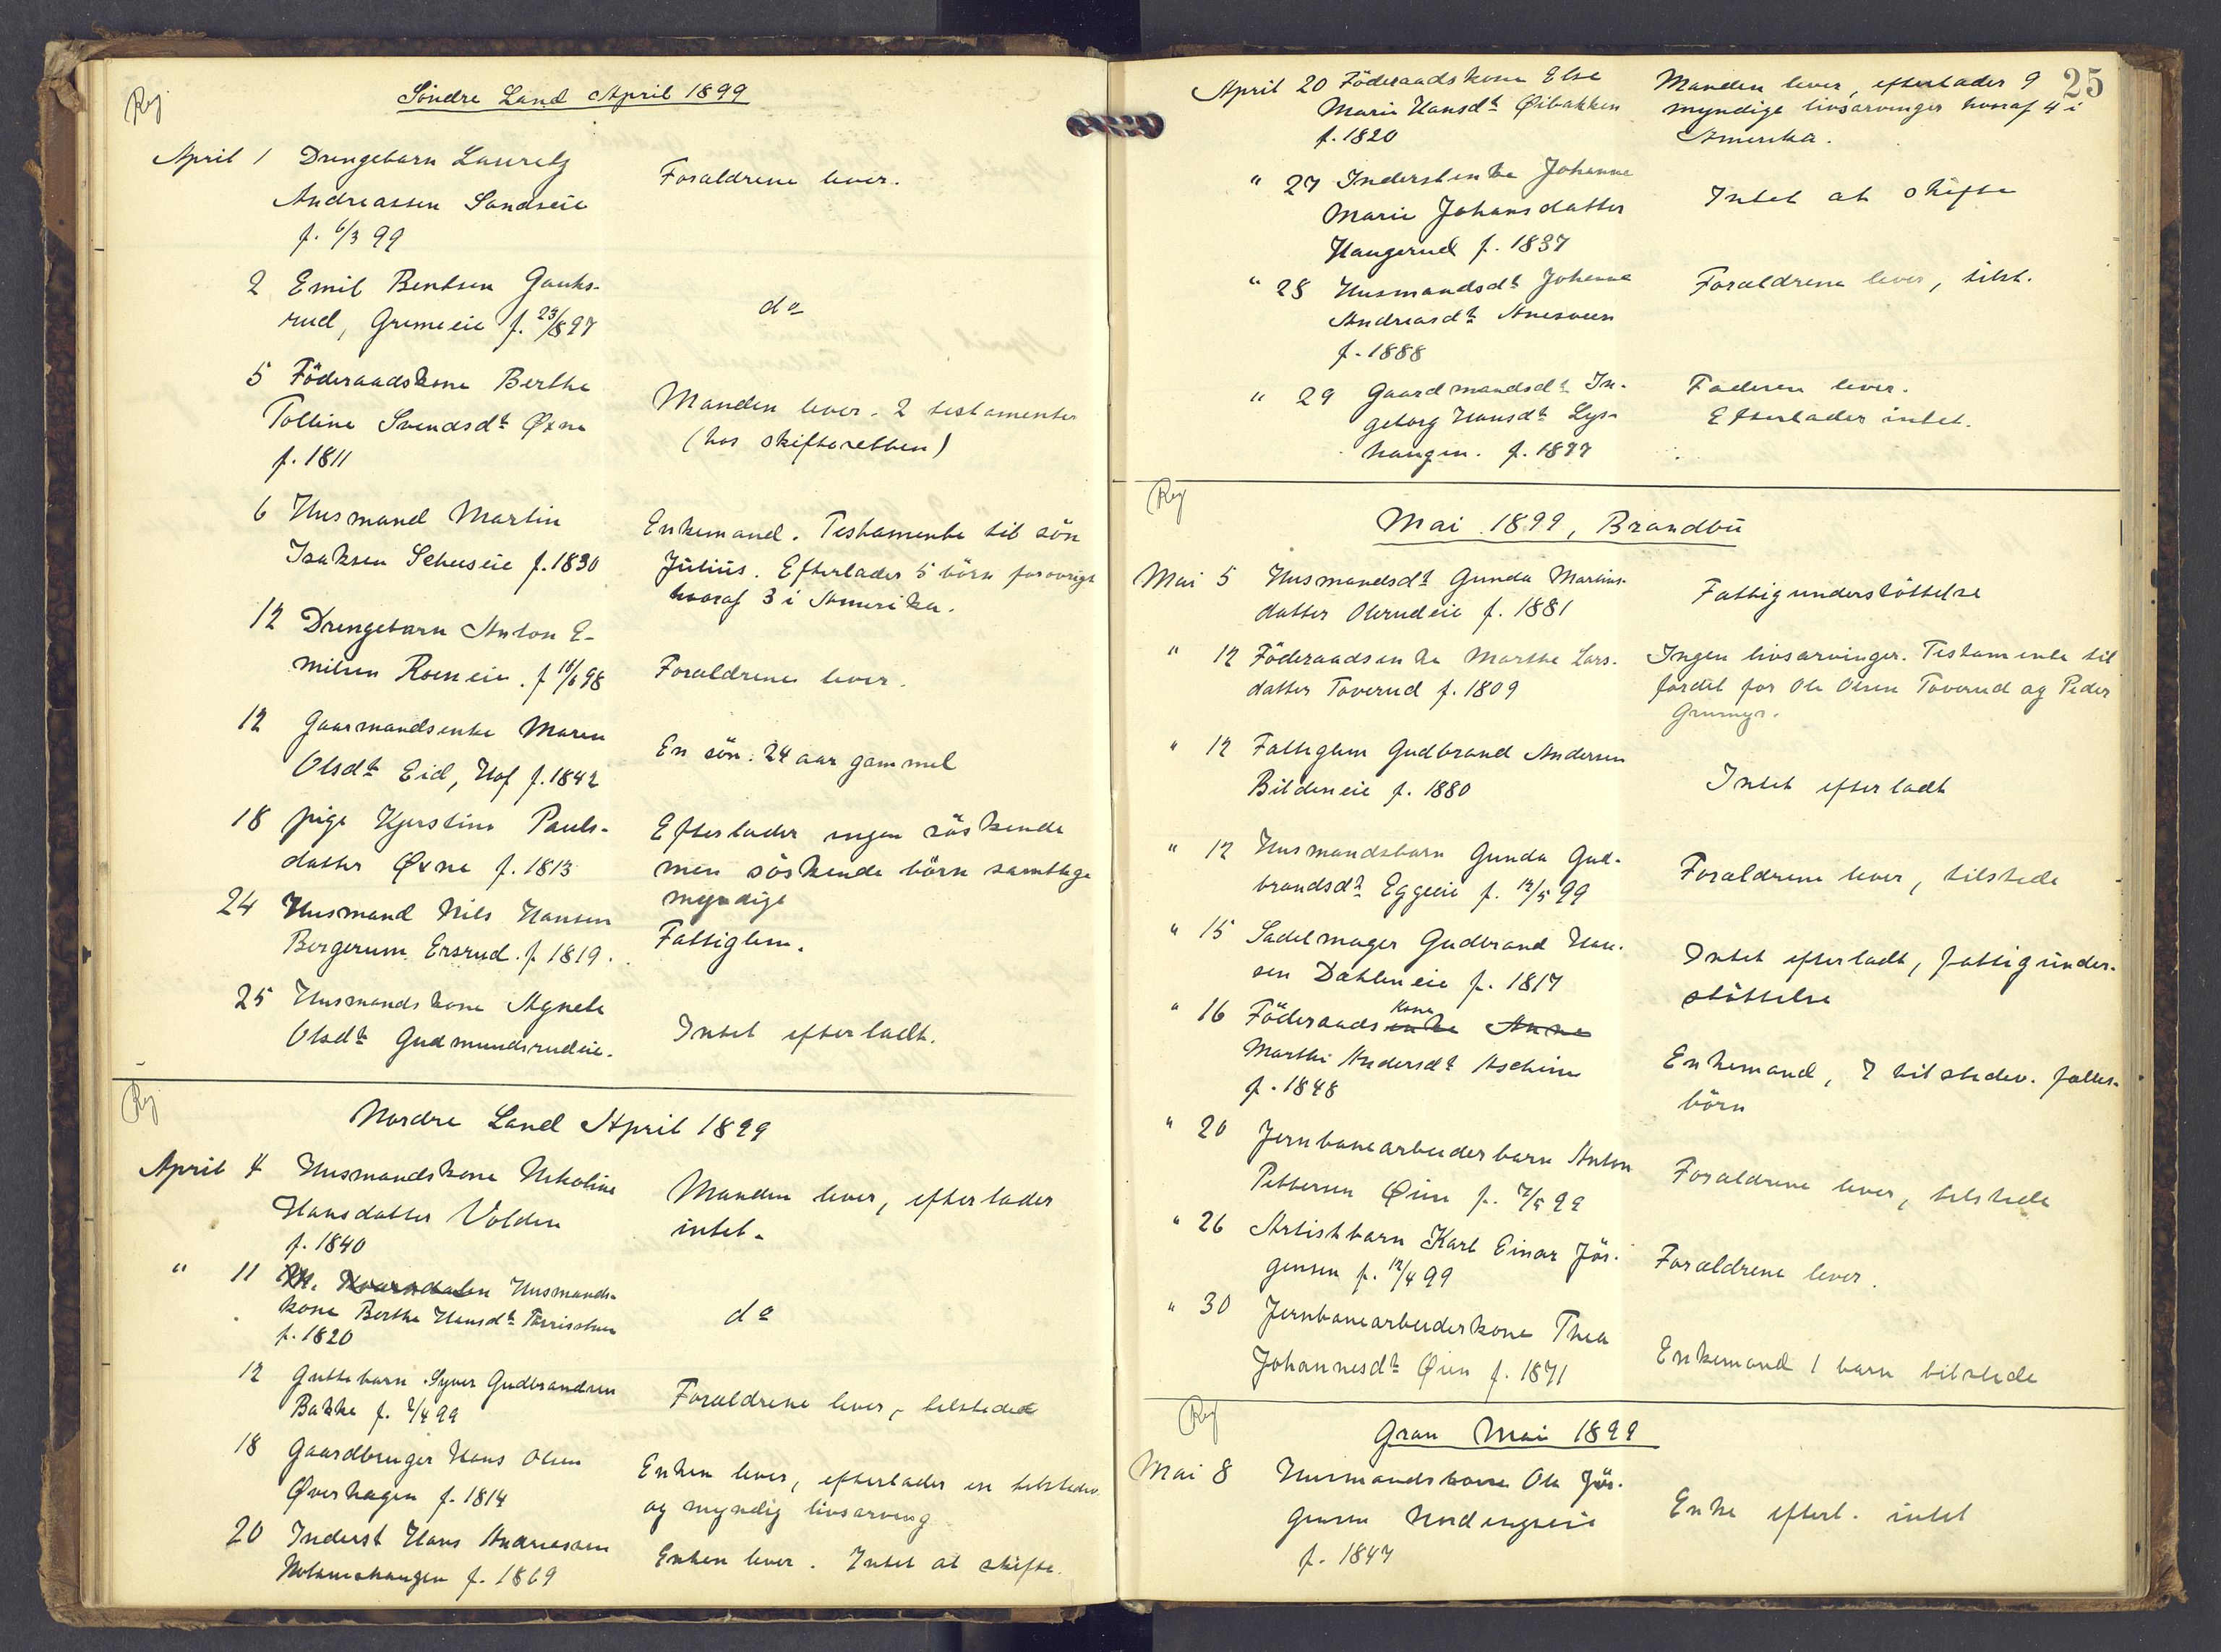 Reg.
Söndre Land April 1899
April 1 Drengebarn Lauretz
Andreassen Sandseie
f. 6/3 99
Forældrene lever.
2 Emil Bentsen Gauks-
rud, Grimeeie f. 23/8 97
do
5 Föderaadskone Berthe
Polline Svendsdt Øxne
f. 1811
Manden lever. 2 testamenter
(hos skifteretten)
6 Husmand Martin
Isaksen Sehuseie f. 1830
Enkemand. Testamente til sön
Julius. Efterlader 5 börn forövrigt
hvoraf 3 i Amerika.
12 Drengebarn Anton E-
milsen Roeneie. f 10/6 98
Forældrene lever.
12 Gaarmandsenke Maren
Olsdt Eid, Hof f. 1842
En sön: 24 aar gammel
18 pige Kjerstine Pauls-
datter Øxne f. 1813
Efterlader ingen söskende
men söskende börn samtlige
myndige
24 Husmand Nils Hansen
Bergerum Ersrud. f 1819.
Fattiglem.
25 Husmandskone Agnete
Olsdt Gudmundsrudeie.
Intet efterladt.
Reg
Nordre Land April 1899
April 4 Husmandskone Nikoline
Hansdatter Volden
f. 1840
Manden lever, efterlader
intet.
" 11 Kvarndalen Husmands-
kone Berthe Hansdt
f. 1820
do
12 Guttebarn Syver Gudbrandsen
Bakke f. 2/4 99
Forældrene lever, tilstede
18 Gaardbruger Hans Olsen
Øverhagen f. 1814
Enken lever, efterlader en tilstedev.
og myndig livsarving
20 Inderst Hans Andreassen
f. 1869
Enken lever. Intet at skifte.
25
April 20 Föderaadskone Else
Marie Hansdt Øibakken
f. 1820
Manden lever, efterlader 9
myndige livsarvinger hvoraf 4 i
Amerika.
" 27 Inderstenke Johanne
Marie Johansdatter
Haugerud f. 1837
Intet at skifte
" 28 Husmandsdt Johanne
Andreasdt Anesveen
f. 1888
Forældrene lever, tilst.
" 29 Gaardmandsdt In-
geborg Hansdt Lys-
haugen. f. 1877
Faderen lever.
Efterlader intet.
Reg
Mai 1899, Brandbu
Mai 5 Husmandsdt Gunda Martins-
datter Olerudeie f. 1881
Fattigunderstöttelse
" 12 Föderaadsenke Marthe Lars-
datter Toverud f. 1809
Ingen livsarvinger. Testamente til
fordel for Ole Olsen Toverud og Peder
" 12 Fattiglem Gudbrand Andersen
Bildeneie f. 1880
Intet efterladt
" 12 Husmandsbarn Gunda Gud-
brandsdt Eggeeie f. 12/5 99
Forældrene lever, tilstede
" 15 Sadelmager Gudbrand Han-
sen Dæhleneie f. 1817
Intet efterladt, fattigunder-
stöttelse
" 16 Föderaadsenke kone Anne
Marthe Andersdt Aschim
f. 1848
Enkemand, 7 tilstedev. fælles-
börn
" 20 Jernbanearbeiderbarn Anton
Pettersen Øien f. 7/5 99
Forældrene lever, tilstede
" 26 Artistbarn Karl Einar Jör-
gensen f. 12/4 99
Forældrene lever.
" 30 Jernbanearbeiderkone Thea
Johannesdt Øien f. 1871
Enkemand 1 barn tilstede
Reg
Gran Mai 1899
Mai 8 Husmandskone Ole Jör-
gensen Nordengseie
f. 1847
Enke efterl. intet